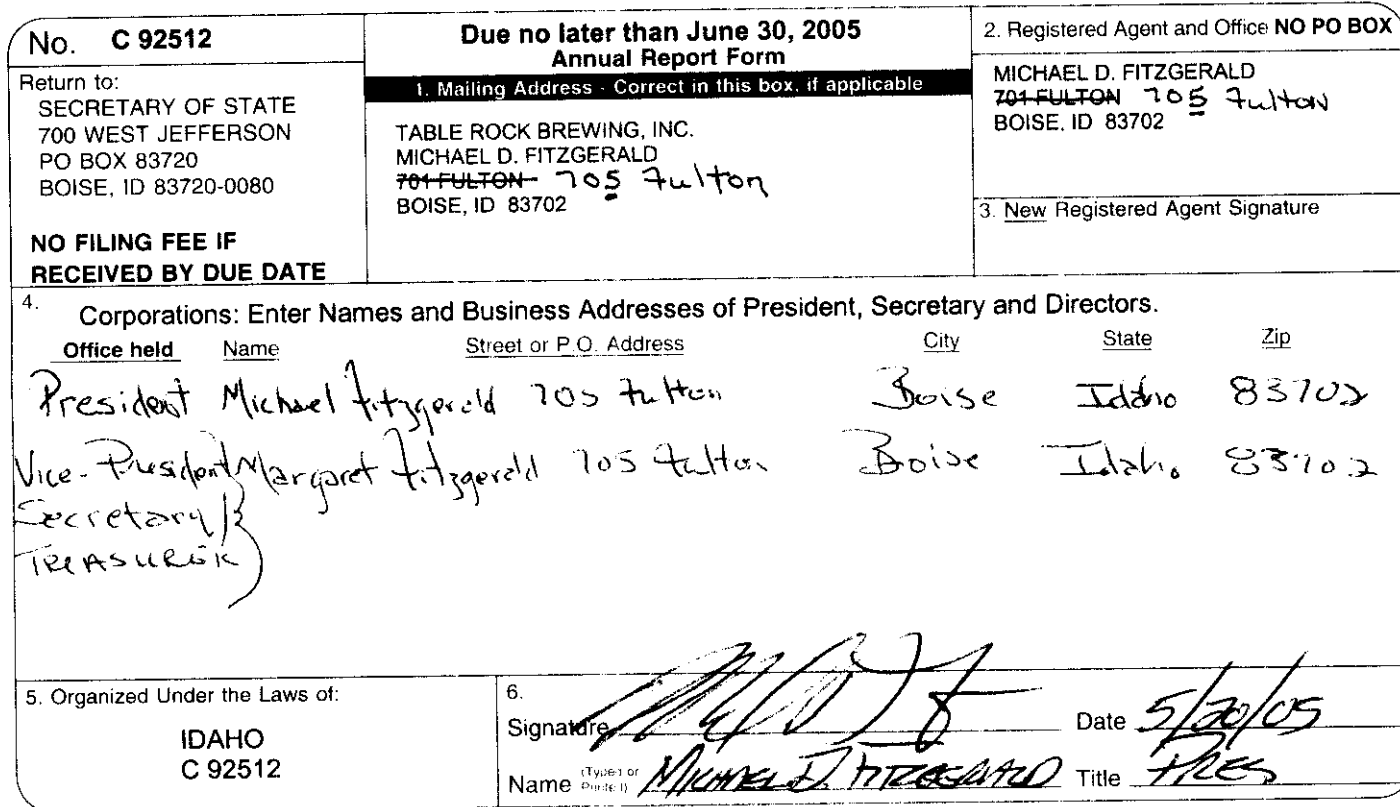 No. C 92512
Return to:
SECRETARY OF STATE
700 WEST JEFFERSON
PO BOX 83720
BOISE, ID 83720-0080
NO FILING FEE IF
RECEIVED BY DUE DATE
Due no later than June 30, 2005
Annual Report Form
1. Mailing Address - Correct in this box, if applicable
TABLE ROCK BREWING, INC.
MICHAEL D. FITZGERALD
701 FULTON 705 Fulton
BOISE, ID 83702
2. Registered Agent and Office NO PO BOX
MICHAEL D. FITZGERALD
701 FULTON 705 Fulton
BOISE, ID 83702
3. New Registered Agent Signature
4. Corporations: Enter Names and Business Addresses of President, Secretary and Directors.
Office held Name Street or P.O. Address City State Zip
President Michael Fitzgerald 705 Fulton Boise Idaho 83702
Vice-President Margaret Fitzgerald 705 Fulton Boise Idaho 83702
Secretary /
TREASURER
5. Organized Under the Laws of:
IDAHO
C 92512
6.
Signature Date 5/20/05
Name (Typed or Printed) MICHAEL D. FITZGERALD Title PRES